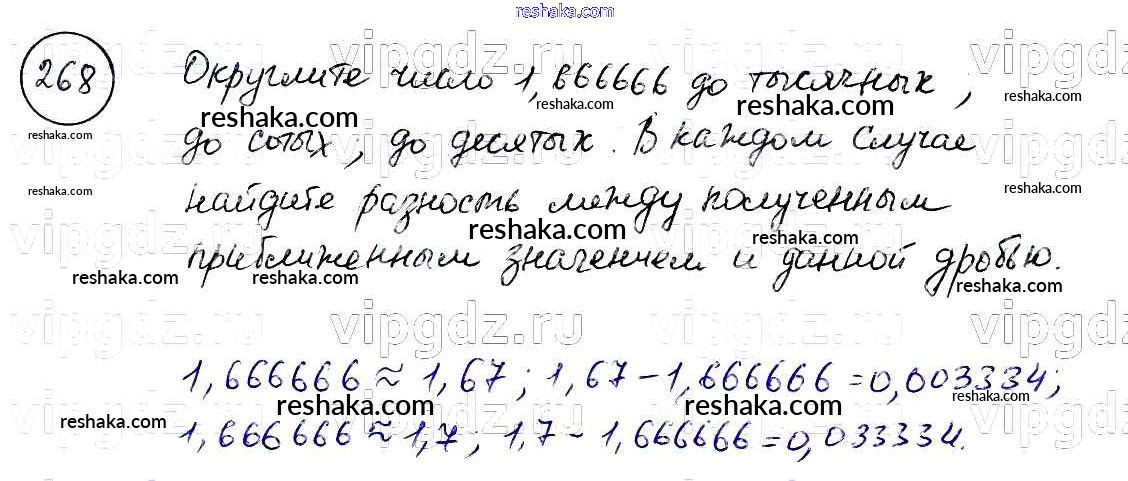 reshaka.com
vipgdz.ru vipgdz.ru vipgdz.ru
268
Округлите число 1,666666 до тысячных;
reshaka.com reshaka.com reshaka.com reshaka.com reshaka.com
до сотых; до десятых. В каждом случае
reshaka.com reshaka.com
найдите разность между полученным
reshaka.com reshaka.com
приближенным значением и данной дробью.
vipgdz.ru vipgdz.ru vipgdz.ru
reshaka.com reshaka.com reshaka.com
vipgdz.ru vipgdz.ru vipgdz.ru
1,666666 ≈ 1,67; 1,67 – 1,666666 = 0,003334;
reshaka.com reshaka.com reshaka.com reshaka.com
1,666666 ≈ 1,7; 1,7 – 1,666666 = 0,033334.
vipgdz.ru vipgdz.ru vipgdz.ru
reshaka.com reshaka.com